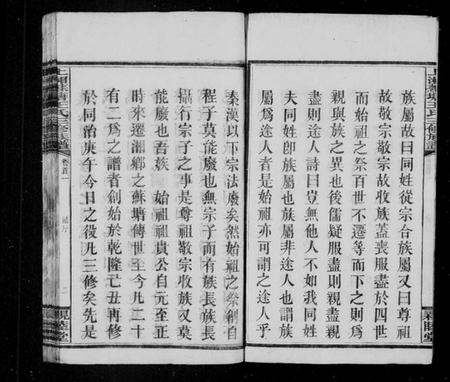 族屬故曰同姓從宗合族屬又曰尊祖
故敬宗敬宗故收族蓋喪服盡於四世
而始祖之祭百世不遷等而下之則爲
親與族之異也後儒疑服盡則親盡親
盡則途人詩曰豈無他人不如我同姓
夫同姓卽族屬也族屬非途人也謂族
屬爲途人者是始祖亦可謂之途人乎
親睦堂
秦漢以下宗法廢矣然始祖之祭剏自
程子莫能廢也無宗子而有族長族長
攝行宗子之事於是尊祖敬宗收族又莫
能廢也吾族 始祖祖貴公自元至正
時來遷湘鄉之蘇塘傳世至今凡二十
有二爲之譜者創始於乾隆己丑再修
於同治庚午今日之役凡三修矣先是
上湘蘇塘王氏三修族譜
卷首一
親睦堂